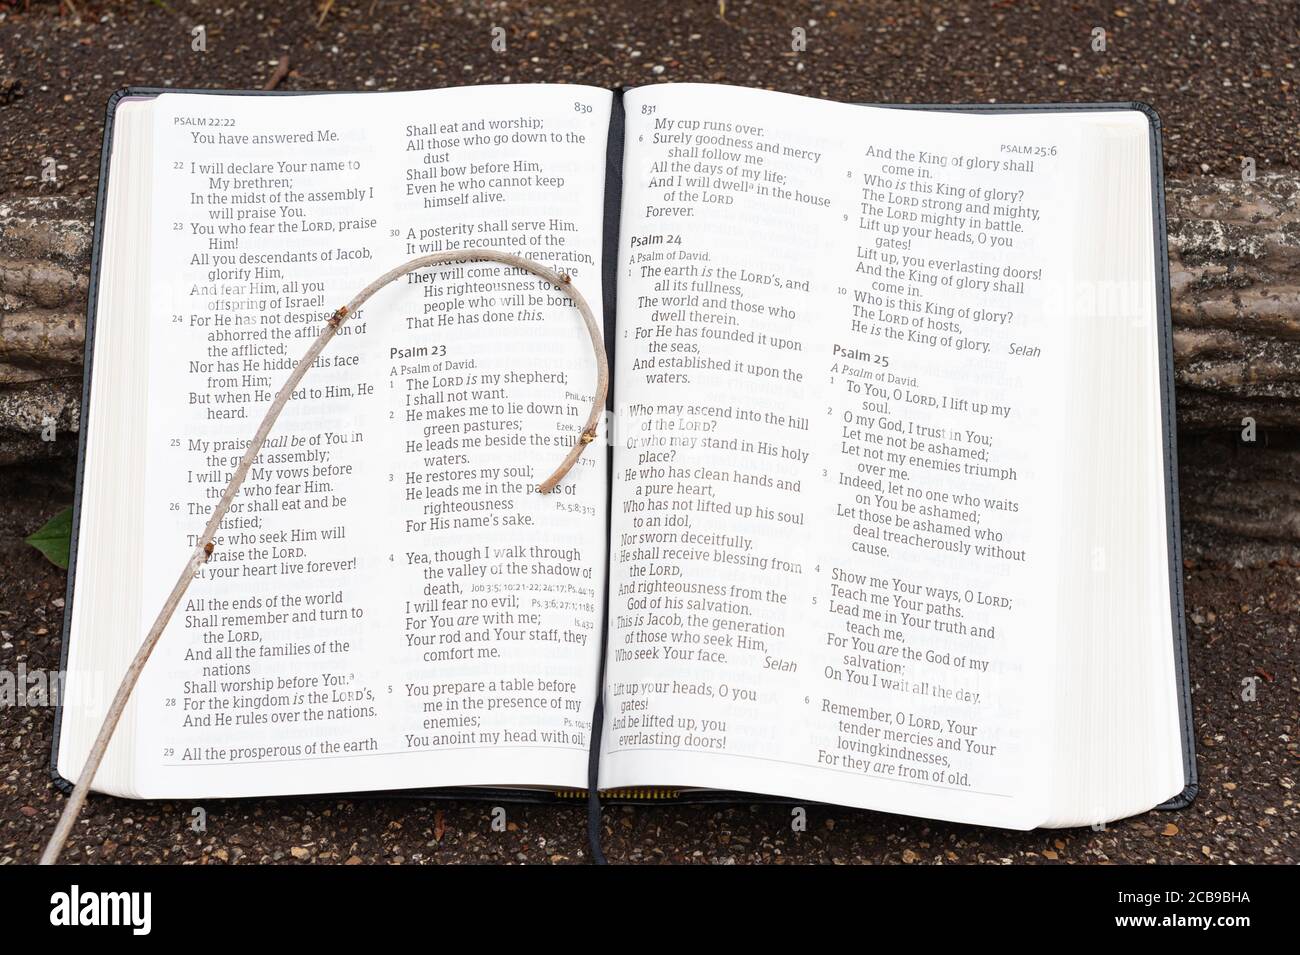 PSALM 22:22
830
You have answered Me.
22 I will declare Your name to
My brethren;
In the midst of the assembly I
will praise You.
23 You who fear the LORD, praise
Him!
All you descendants of Jacob,
glorify Him,
And fear Him, all you
offspring of Israel!
24 For He has not despised nor
abhorred the affliction of
the afflicted;
Nor has He hidden His face
from Him;
But when He cried to Him, He
heard.
25 My praise shall be of You in
the great assembly;
I will pay My vows before
those who fear Him.
26 The poor shall eat and be
satisfied;
Those who seek Him will
praise the LORD.
Let your heart live forever!
All the ends of the world
Shall remember and turn to
the LORD,
And all the families of the
nations
Shall worship before You.a
28 For the kingdom is the LORD's,
And He rules over the nations.
29 All the prosperous of the earth
Shall eat and worship;
All those who go down to the
dust
Shall bow before Him,
Even he who cannot keep
himself alive.
30 A posterity shall serve Him.
It will be recounted of the
to the generation,
They will come and declare
His righteousness to a
people who will be born,
That He has done this.
Psalm 23
A Psalm of David.
1 The LORD is my shepherd;
I shall not want. Phil. 4:19
2 He makes me to lie down in
green pastures; Ezek.
He leads me beside the still
waters. 7:17
3 He restores my soul;
He leads me in the paths of
righteousness Ps. 5:8; 31:3
For His name's sake.
4 Yea, though I walk through
the valley of the shadow of
death, Job 3:5; 10:21-22; 24:17; Ps. 44:19
I will fear no evil; Ps. 3:6; 27:1; 118:6
For You are with me; Is. 43:2
Your rod and Your staff, they
comfort me.
5 You prepare a table before
me in the presence of my
enemies; Ps. 104:15
You anoint my head with oil;
831
PSALM 25:6
My cup runs over.
6 Surely goodness and mercy
shall follow me
All the days of my life;
And I will dwella in the house
of the LORD
Forever.
Psalm 24
A Psalm of David.
1 The earth is the LORD's, and
all its fullness,
The world and those who
dwell therein.
2 For He has founded it upon
the seas,
And established it upon the
waters.
Who may ascend into the hill
of the LORD?
Or who may stand in His holy
place?
4 He who has clean hands and
a pure heart,
Who has not lifted up his soul
to an idol,
Nor sworn deceitfully.
He shall receive blessing from
the LORD,
And righteousness from the
God of his salvation.
This is Jacob, the generation
of those who seek Him,
Who seek Your face. Selah
Lift up your heads, O you
gates!
And be lifted up, you
everlasting doors!
And the King of glory shall
come in.
8 Who is this King of glory?
The LORD strong and mighty,
The LORD mighty in battle.
9 Lift up your heads, O you
gates!
Lift up, you everlasting doors!
And the King of glory shall
come in.
10 Who is this King of glory?
The LORD of hosts,
He is the King of glory. Selah
Psalm 25
A Psalm of David.
1 To You, O LORD, I lift up my
soul.
2 O my God, I trust in You;
Let me not be ashamed;
Let not my enemies triumph
over me.
3 Indeed, let no one who waits
on You be ashamed;
Let those be ashamed who
deal treacherously without
cause.
4 Show me Your ways, O LORD;
Teach me Your paths.
5 Lead me in Your truth and
teach me,
For You are the God of my
salvation;
On You I wait all the day.
6 Remember, O LORD, Your
tender mercies and Your
lovingkindnesses,
For they are from of old.
alamy
Image ID: 2CB9BHA
www.alamy.com